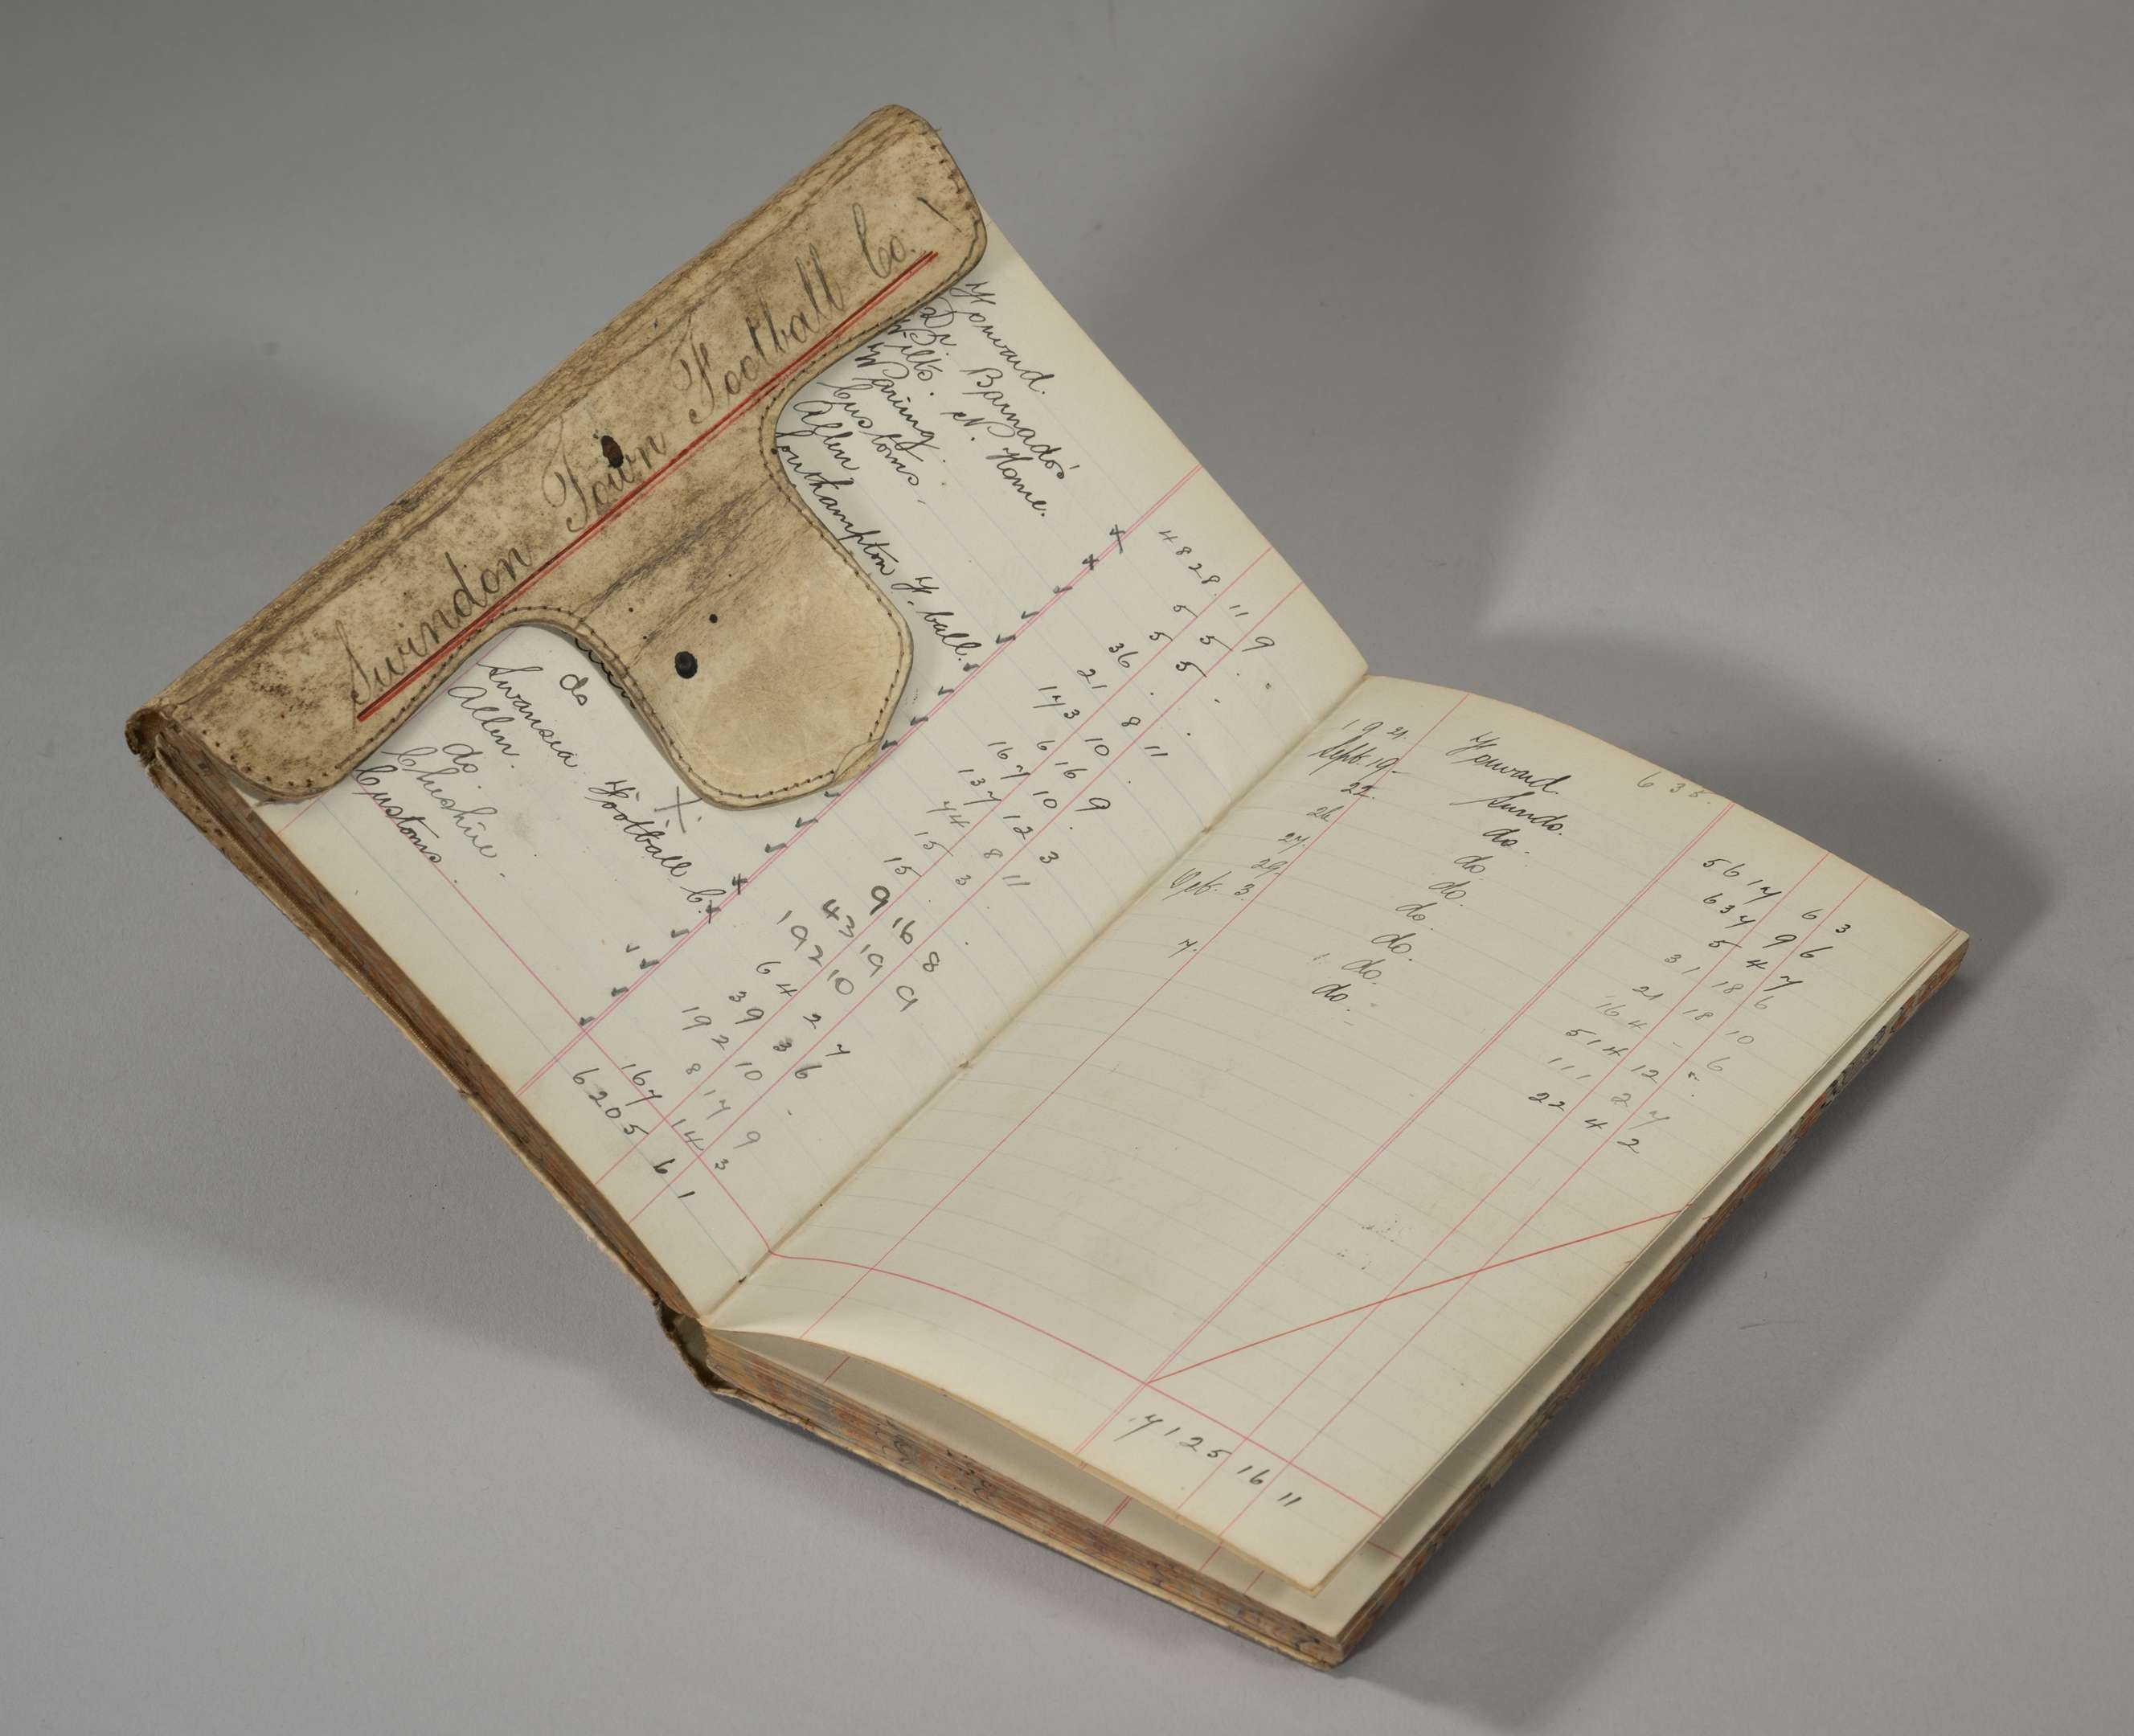 Swindon Town Football Co.
Forward. 4828 11 9
Dr. Barnado's 5 5 .
Wilts. N. Home. 5 5 -
Waring. 36 . .
Customs. 21 8 11
Allen 173 10 .
Southampton F. ball. 6 16 9
167 10 .
137 12 3
74 8 11
15 3 .
15 . .
9 16 8
do 43 19 9
Swansea Football C. 192 10
Allen. 6 4 2
do 39 3 7
Cheshire. 192 10 6
Customs. 8 17 -
167 14 9
6205 6 3
1
1921. Forward. 635. 5617 6 3
Sept. 19. Sundo. 637 9 6
22. do. 5 4 7
26 do. 31 18 6
27. do. 21 18 10
29. do. 164 - 6
Oct. 3. do. 514 12 -
do. 111 2 7
7. do. 22 4 2
7125 16 11